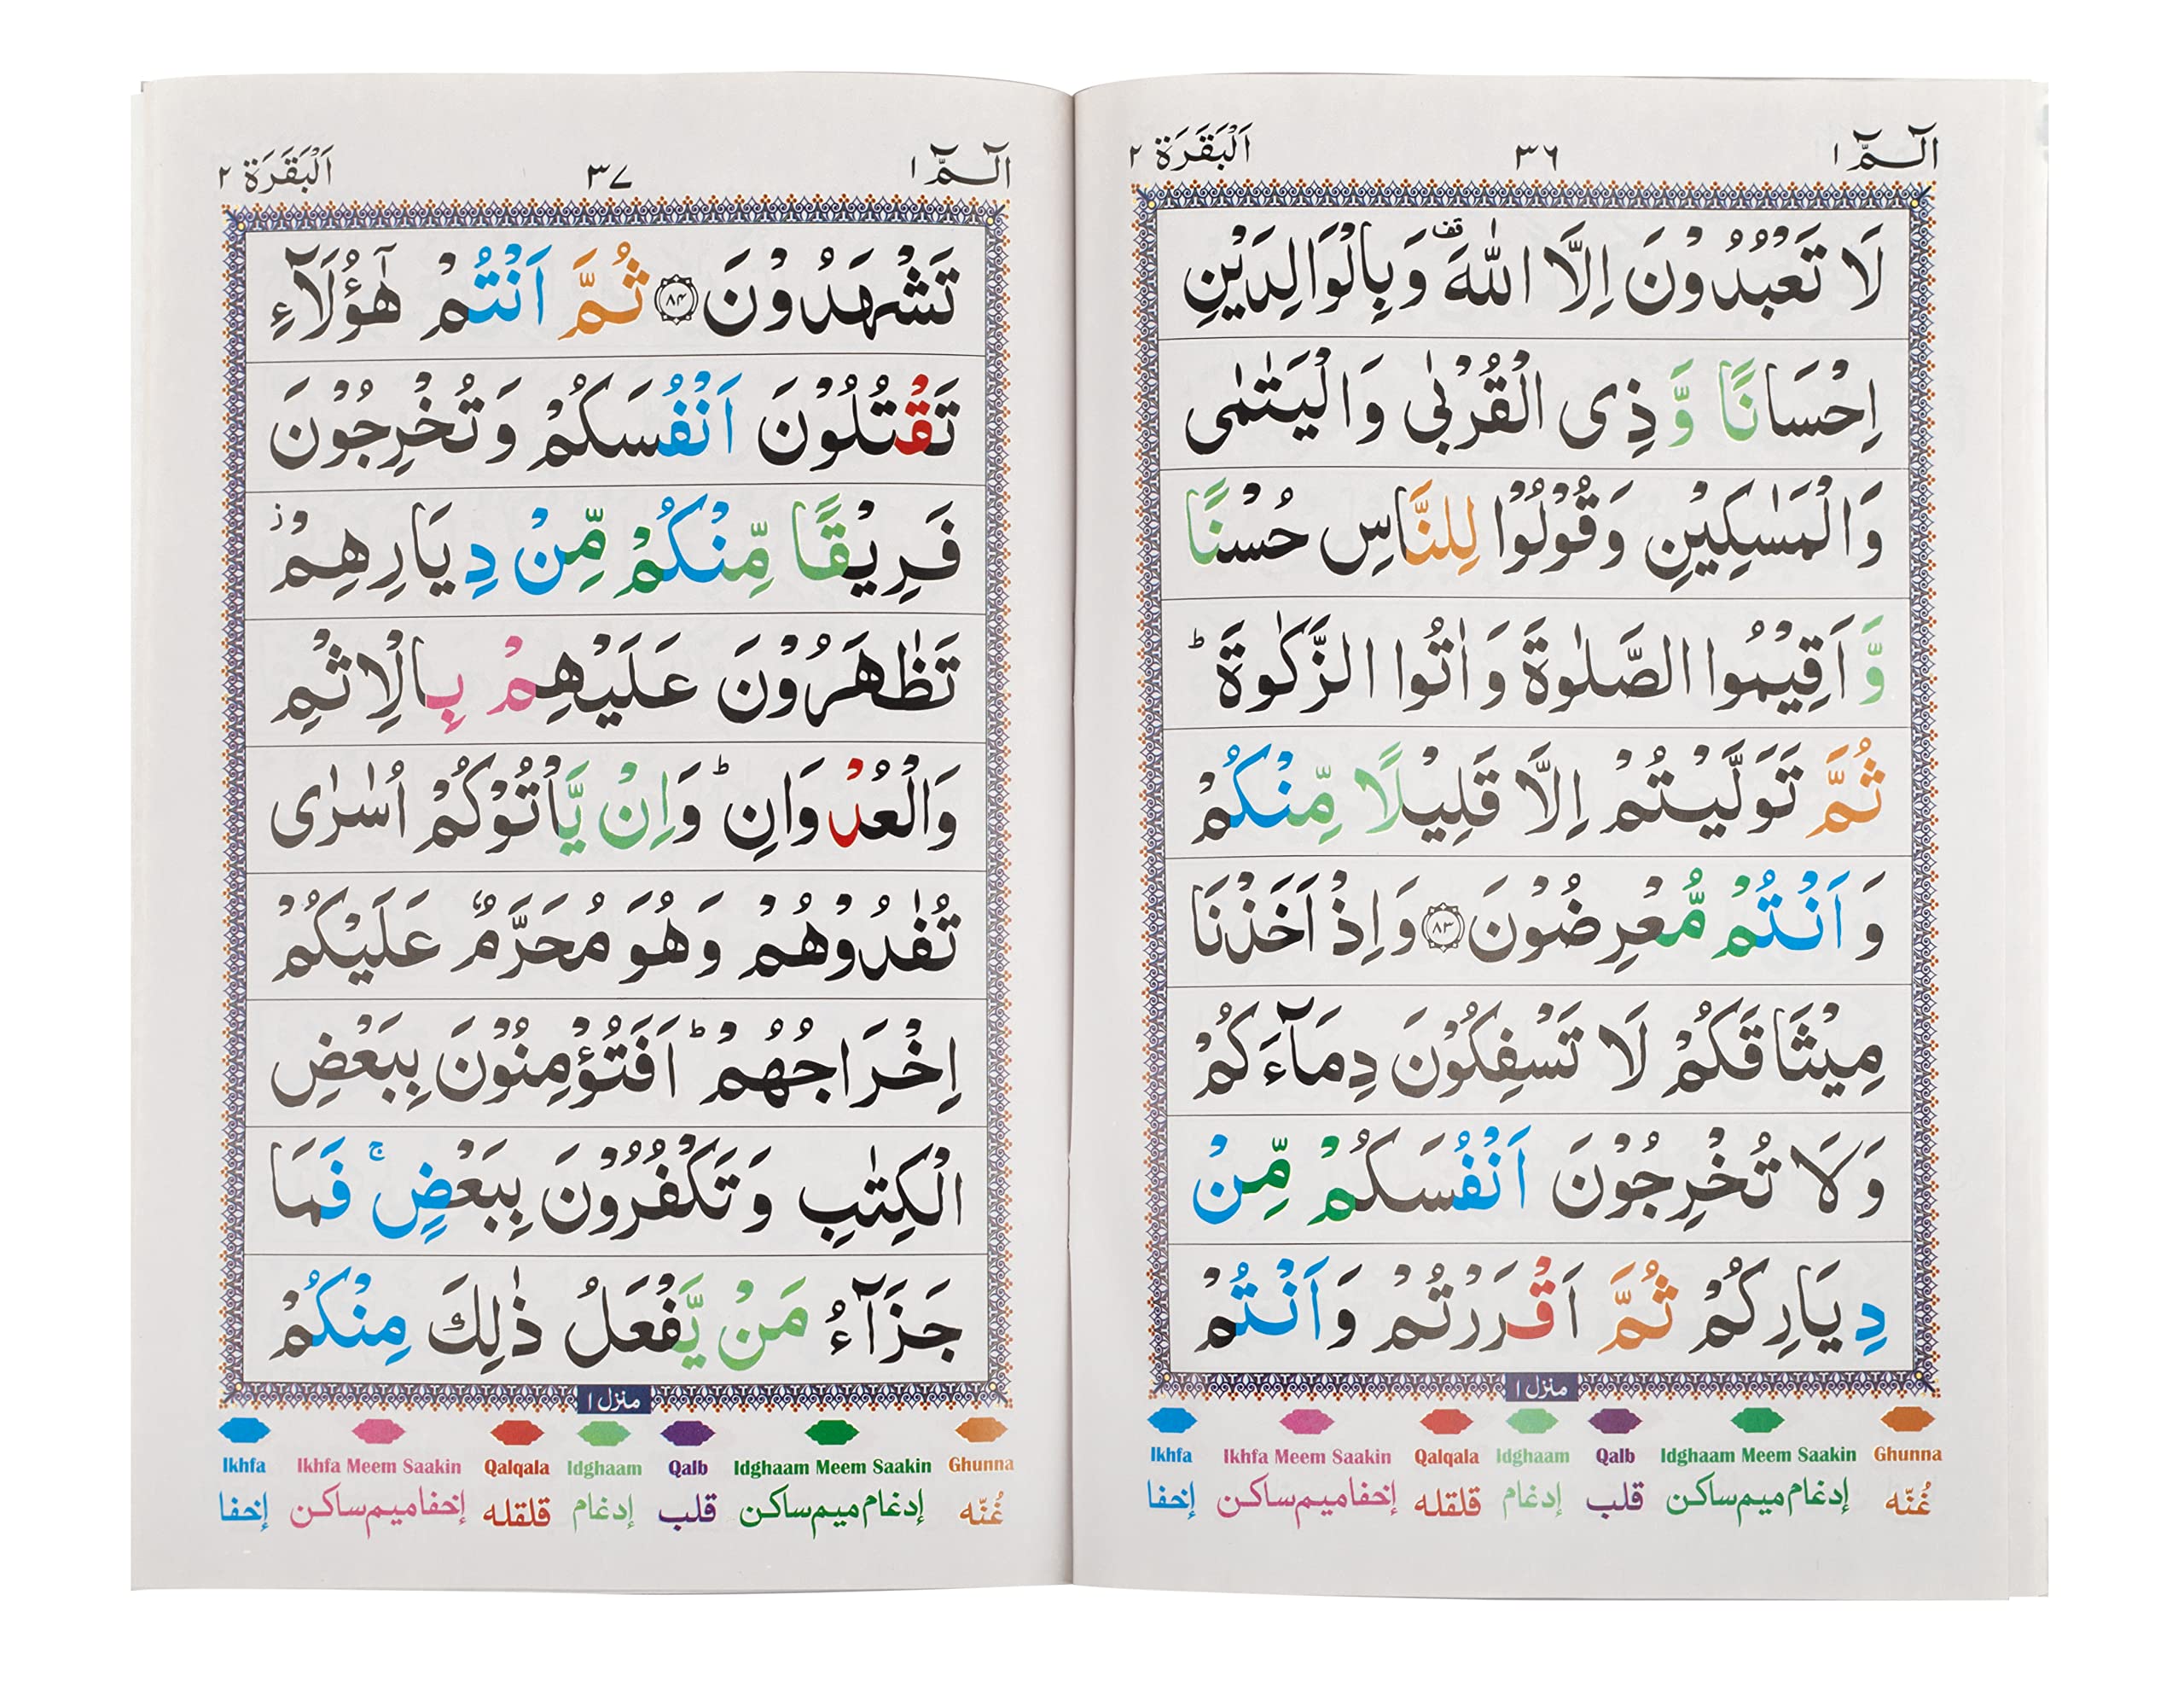 الٓـمّٓ ۱ ۳۶ اَلْبَقَرَة ۲
لَا تَعْبُدُوْنَ اِلَّا اللّٰهَ ۫ قف وَبِالْوَالِدَيْنِ
اِحْسَانًا وَّ ذِی الْقُرْبٰی وَالْيَتٰمٰی
وَالْمَسٰكِيْنِ وَقُوْلُوْا لِلنَّاسِ حُسْنًا
وَّ اَقِيْمُوا الصَّلٰوةَ وَ اٰتُوا الزَّكٰوةَ ؕ
ثُمَّ تَوَلَّيْتُمْ اِلَّا قَلِيْلًا مِّنْكُمْ
وَ اَنْتُمْ مُّعْرِضُوْنَ ﴿۸۳﴾ وَ اِذْ اَخَذْنَا
مِيْثَاقَكُمْ لَا تَسْفِكُوْنَ دِمَآءَكُمْ
وَلَا تُخْرِجُوْنَ اَنْفُسَكُمْ مِّنْ
دِيَارِكُمْ ثُمَّ اَقْرَرْتُمْ وَ اَنْتُمْ
منزل ۱
Ikhfa Ikhfa Meem Saakin Qalqala Idghaam Qalb Idghaam Meem Saakin Ghunna
غُنّه إدغام ميم ساكن قلب إدغام قلقله إخفا ميم ساكن إخفا
الٓـمّٓ ۱ ۳۷ اَلْبَقَرَة ۲
تَشْهَدُوْنَ ﴿۸۴﴾ ثُمَّ اَنْتُمْ هٰٓؤُلَآءِ
تَقْتُلُوْنَ اَنْفُسَكُمْ وَ تُخْرِجُوْنَ
فَرِيْقًا مِّنْكُمْ مِّنْ دِيَارِهِمْ ؗ
تَظٰهَرُوْنَ عَلَيْهِمْ بِالْاِثْمِ
وَالْعُدْوَانِ ؕ وَاِنْ يَّاْتُوْكُمْ اُسٰرٰی
تُفٰدُوْهُمْ وَهُوَ مُحَرَّمٌ عَلَيْكُمْ
اِخْرَاجُهُمْ ؕ اَفَتُؤْمِنُوْنَ بِبَعْضِ
الْكِتٰبِ وَ تَكْفُرُوْنَ بِبَعْضٍ ۚ فَمَا
جَزَآءُ مَنْ يَّفْعَلُ ذٰلِكَ مِنْكُمْ
منزل ۱
Ikhfa Ikhfa Meem Saakin Qalqala Idghaam Qalb Idghaam Meem Saakin Ghunna
غُنّه إدغام ميم ساكن قلب إدغام قلقله إخفا ميم ساكن إخفا